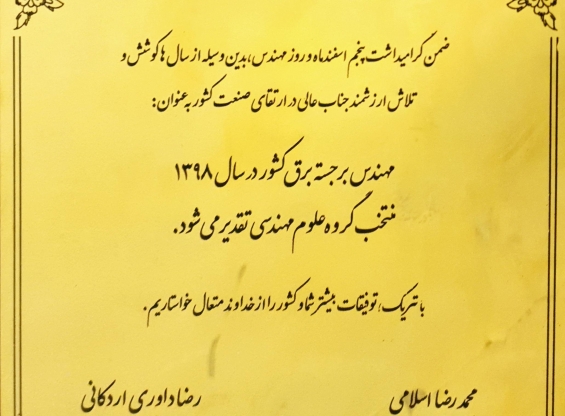 ضمن گرامیداشت پنجم اسفندماه و روز مهندس، بدین وسیله از سال ها کوشش و
تلاش ارزشمند جناب عالی در ارتقای صنعت کشور به عنوان:
مهندس برجسته برق کشور در سال ۱۳۹۸
منتخب گروه علوم مهندسی تقدیر می شود.
با تبریک، توفیقات بیشتر شما و کشور را از خداوند متعال خواستاریم.
محمد رضا اسلامی
رضا داوری اردکانی